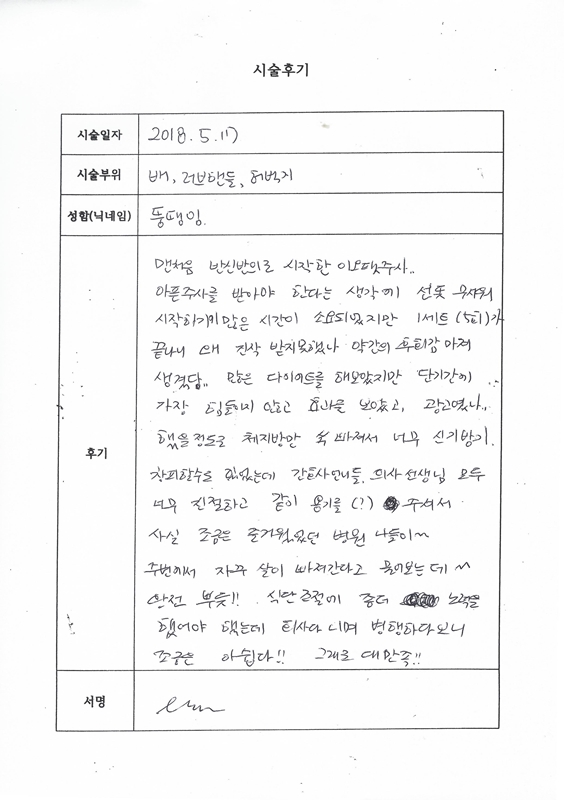 시술후기
시술일자 2018. 5. 17
시술부위 배, 러브핸들, 허벅지
성함(닉네임) 뚱땡이.
후기
맨처음 반신반의로 시작한 이요팻주사..
아픈주사를 받아야 한다는 생각에 선뜻 무서워
시작하기까지 많은 시간이 소요되었지만 1세트(5회)가
끝나니 왜 진작 받지못했나 약간의 후회감 마져
생겼답.. 많은 다이어트를 해보았지만 단기간에
가장 힘들이지 않고 효과를 보았고, 광고였나..
했을정도로 체지방만 쏙 빠져서 너무 신기방기.
창피할수도 있었는데 간호사언니들, 의사선생님 모두
너무 친절하고 같이 용기를(?) 주셔서
사실 조금은 즐거웠었던 병원 나들이~
주변에서 자꾸 살이 빠져간다고 물어보는데~
완전 뿌듯!! 식단조절에 좀더 노력을
했어야 했는데 회사다니며 병행하다보니
조금은 아쉽다!! 그래도 대만족!!
서명